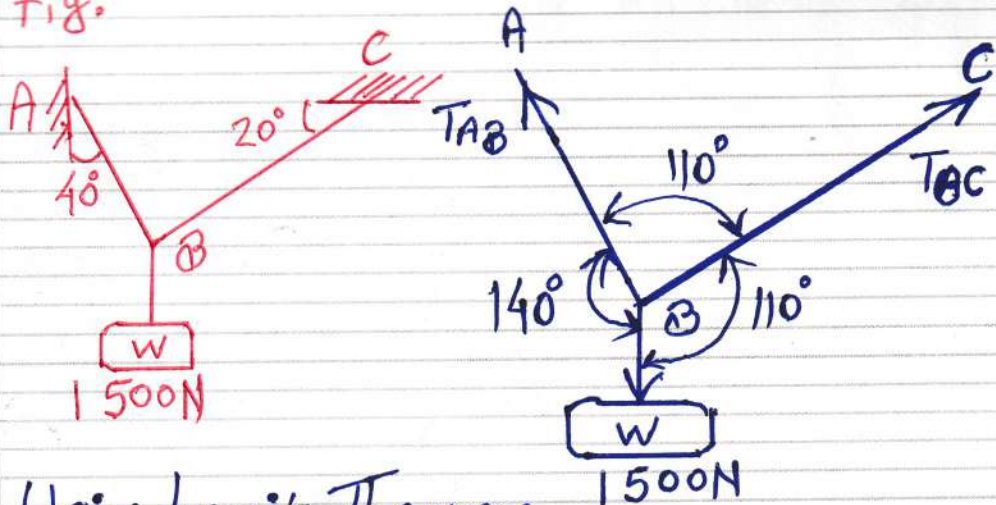 Fig.
A
40°
20°
C
B
W
1500N
A
TAB
110°
C
TBC
140°
B
110°
W
1500N